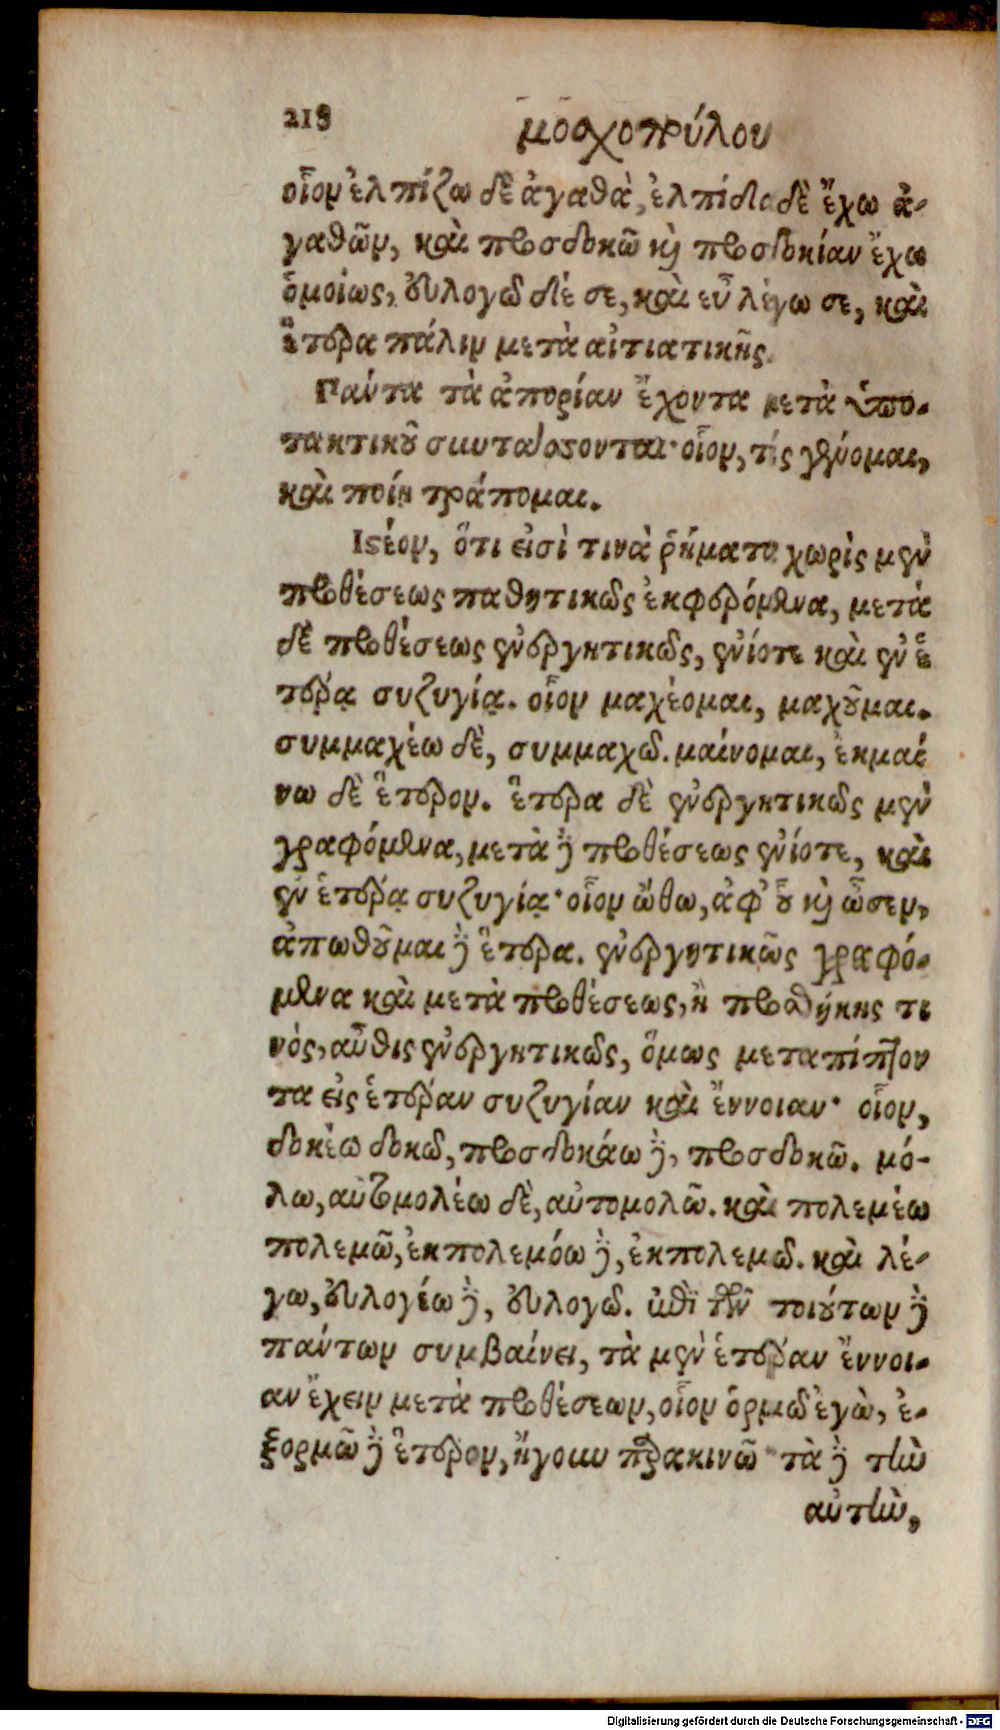 218 μοσχοπύλου
οἷον ἐλπίζω δὲ ἀγαθὰ, ἐλπίδα δὲ ἔχω ἀ-
γαθῶν, καὶ προσδοκῶ καὶ προσδοκίαν ἔχω
ὁμοίως, εὐλογῶ δέ σε, καὶ εὖ λέγω σε, καὶ
ἕτερα πάλιν μετὰ αἰτιατικῆς.
Πάντα τὰ ἀπορίαν ἔχοντα μετὰ ὑπο-
τακτικοῦ συντάσσονται· οἷον, τίς γένομαι,
καὶ ποίη τράπομαι.
Ιστέον, ὅτι εἰσὶ τινὰ ῥήματα χωρὶς μὲν
προθέσεως παθητικῶς ἐκφερόμενα, μετὰ
δὲ προθέσεως ἐνεργητικῶς, ἐνίοτε καὶ ἐν ἑ
τέρᾳ συζυγίᾳ. οἷον μαχέομαι, μαχοῦμαι.
συμμαχέω δὲ, συμμαχῶ. μαίνομαι, ἐκμαί
νω δὲ ἕτερον. ἕτερα δὲ ἐνεργητικῶς μὲν
γραφόμενα, μετὰ δὲ προθέσεως ἐνίοτε, καὶ
ἐν ἑτέρᾳ συζυγίᾳ· οἷον ὤθω, ἀφ' οὗ καὶ ὦσεν,
ἀπωθοῦμαι δὲ ἕτερα. ἐνεργητικῶς γραφό-
μενα καὶ μετὰ προθέσεως, ἢ προσθήκης τι
νός, αὖθις ἐνεργητικῶς, ὅμως μεταπίπτον
τα εἰς ἑτέραν συζυγίαν καὶ ἔννοιαν· οἷον,
δοκέω δοκῶ, προσδοκάω δὲ, προσδοκῶ. μό-
λω, αὐτομολέω δὲ, αὐτομολῶ. καὶ πολεμέω
πολεμῶ, ἐκπολεμόω δὲ, ἐκπολεμῶ. καὶ λέ-
γω, εὐλογέω δὲ, εὐλογῶ. ἐπὶ τῶν τοιούτων δὲ
πάντων συμβαίνει, τὰ μὲν ἑτέραν ἔννοι-
αν ἔχειν μετὰ προθέσεων, οἷον ὁρμῶ ἐγὼ, ἐ-
ξορμῶ δὲ ἕτερον, ἤγουν παρακινῶ τὰ δὲ τὴν
αὐτὴν,
Digitalisierung gefördert durch die Deutsche Forschungsgemeinschaft - DFG